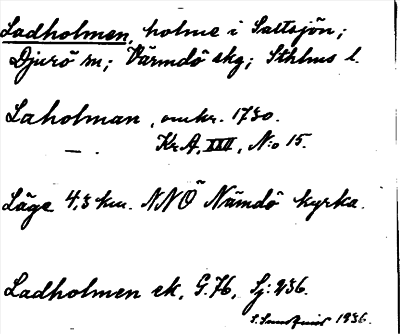 Ladholmen, holme i Saltsjön;
Djurö sn; Värmdö skg; Sthlms l.
Laholman, omkr. 1730.
— . Kr.A, XXII, N:o 15.
Läge 4,3 km. NNÖ Nämdö kyrka.
Ladholmen ek, G.76, Sj: 236.
1936.